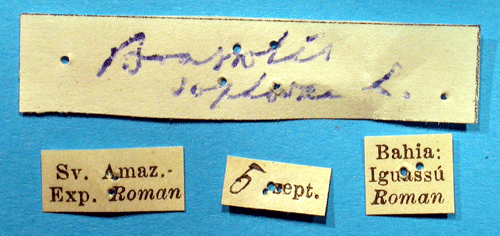 Brassolis
sophorae L.
Sv. Amaz.-
Exp. Roman
5 sept.
Bahia:
Iguassú
Roman